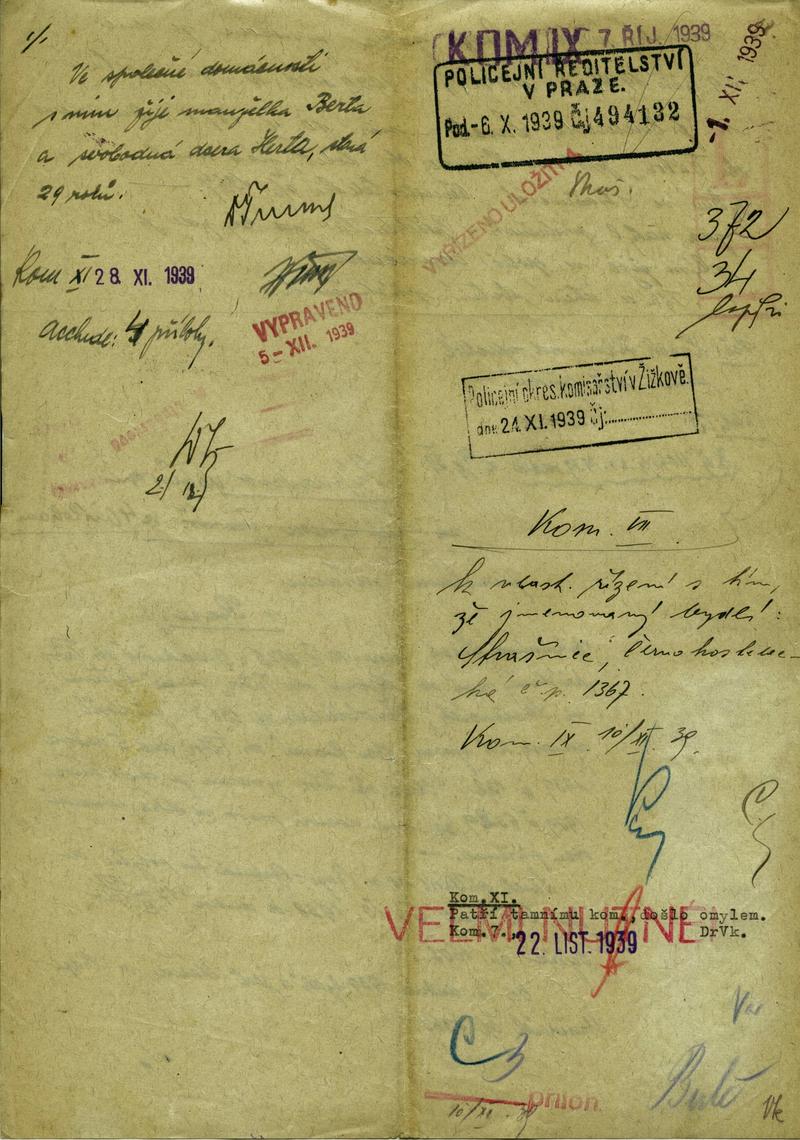 1/.
Ve společné domácnosti
s ním žijí manželka Berta
a svobodná dcera Herta, stará
29 roků.
Kom XI 28. XI. 1939
4 přílohy.
VYPRAVENO
5-XII. 1939
2/12
KOM IX 7 ŘÍJ. 1939
POLICEJNÍ ŘEDITELSTVÍ
V PRAZE.
Pod -6. X. 1939 Čj 494132
-1. XII. 1939
VYŘÍZENO ULOŽITI
372
34
Policejní okres. komisařství v Žižkově.
dne 24. XI. 1939 Čj:
Kom. VII
k vlast. řízení s tím,
že jmenovaný bydlí:
Strašnice, Černokostelec-
ká č. p. 1367.
Kom. IX 10/XI 39.
Kom.XI.
Patří tamnímu kom., došlo omylem.
VELMI NUTNÉ
Kom.7., 22. LIST. 1939 DrVk.
10/XI. 39
Vk